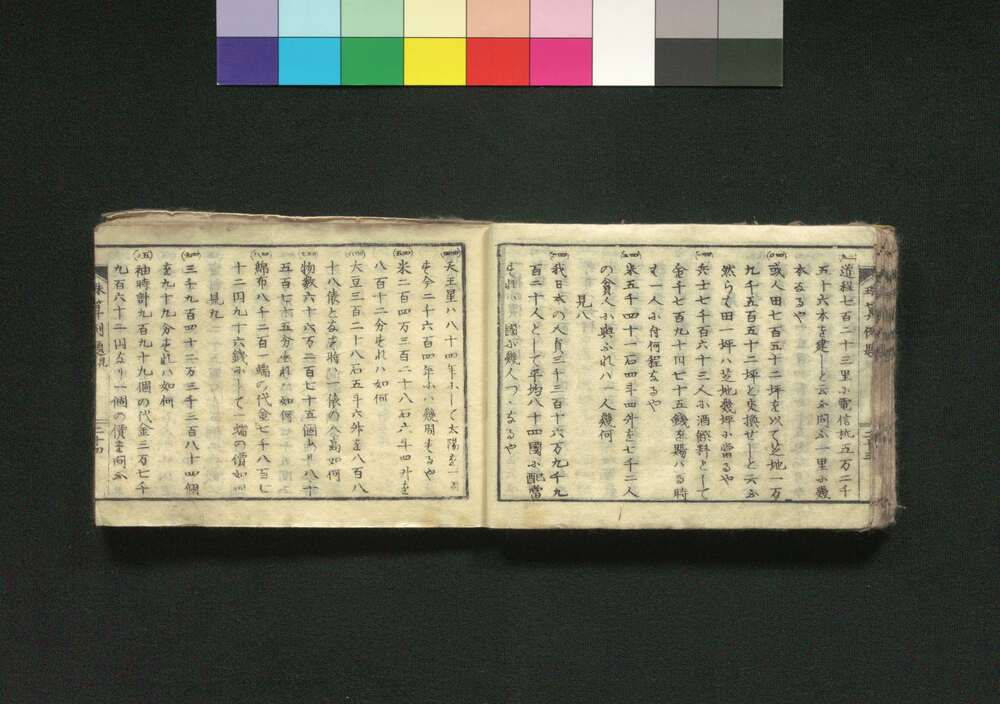 道程七百二十三里小電信杭五万二千
五十六本を建しと云今問ふ一里小幾
本なるや
或人田七百五十二坪を以て芝地一万
九千五百五十二坪と交換せしと云ふ
然らて田一坪ハ芝地幾坪小當るや
兵士七千百六十三人小酒肴料として
金千七百九十円七十五錢を賜ハる時
も一人小付何程なるや
米五千四十一石四斗四舛を七千二人
の貧人小與ふれハ一人幾何
見八
我日本の人員三千三百十六万九千九
百二十人として平均八十四國小配當
すれハ一國小幾人つゝなるや
天王星ハ八十四年小して太陽を一
す今二千六百四年小ハ幾周するや
米二百四万三百二十八石六斗四舛を
八百十二分すれハ如何
大豆三百二十八石五斗六舛を八百八
十八俵となす時ハ一俵の入高如何
物数六十六万二百七十五個あり八十
五百七十五分すれハ如何
綿布八千二百一端の代金七千八百七
十二円九十六錢小して一端の價如何
見九
三千九百四十二万三千三百八十四個
を九十九分すれハ如何
袖時計九百九十九個の代金三万七千
九百六十二円なり一個の價を問ふ
珠算例題
三十四